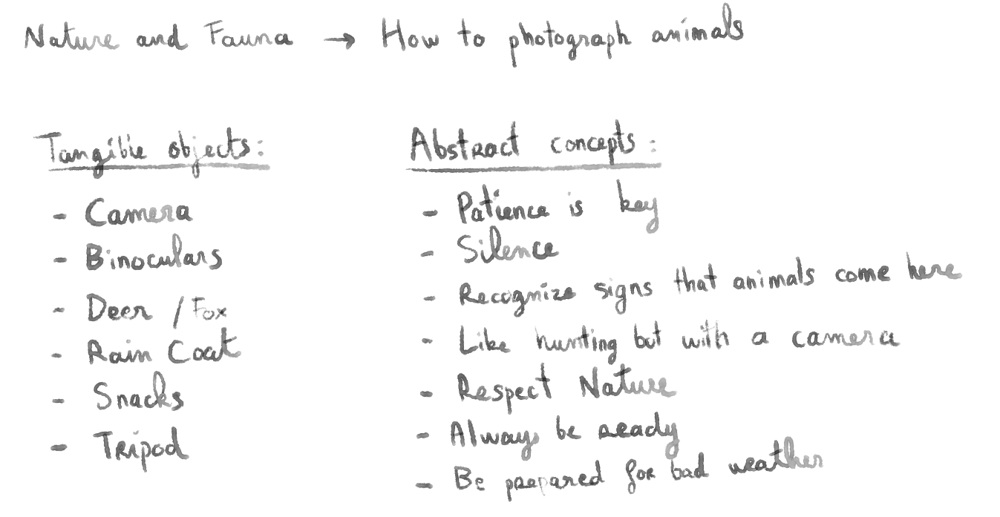 Nature and Fauna → How to photograph animals
Tangible objects:
- Camera
- Binoculars
- Deer / Fox
- Rain Coat
- Snacks
- Tripod
Abstract concepts:
- Patience is key
- Silence
- Recognize signs that animals come here
- Like hunting but with a camera
- Respect Nature
- Always be ready
- Be prepared for bad weather